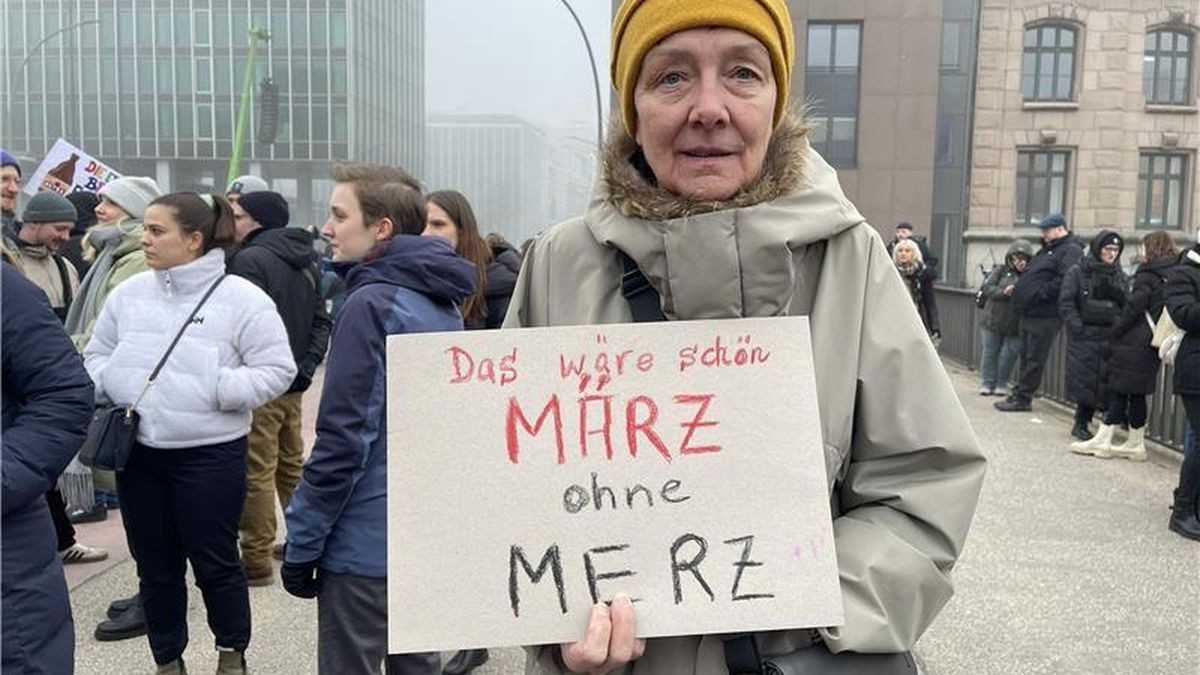 Das wäre schön
MÄRZ
ohne
MERZ